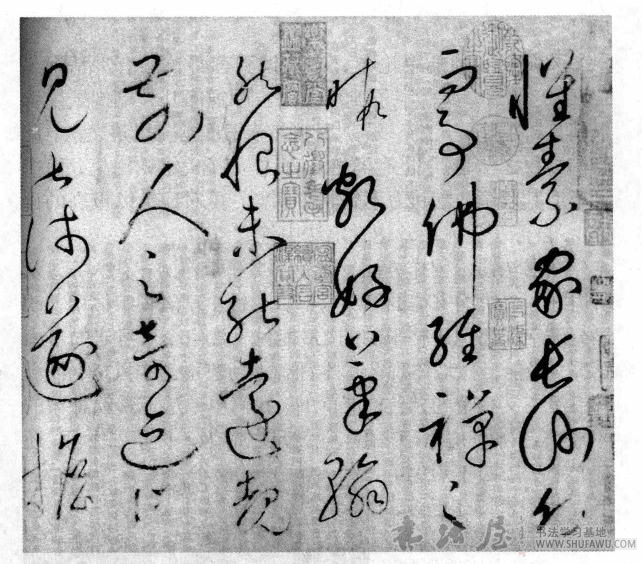 懷素家長沙幼
而事佛經禪之
暇頗好筆翰
然恨未能遠覩
前人之奇迹所
見甚淺遂擔
书法屋
书法学习基地
WWW.SHUFAWU.COM